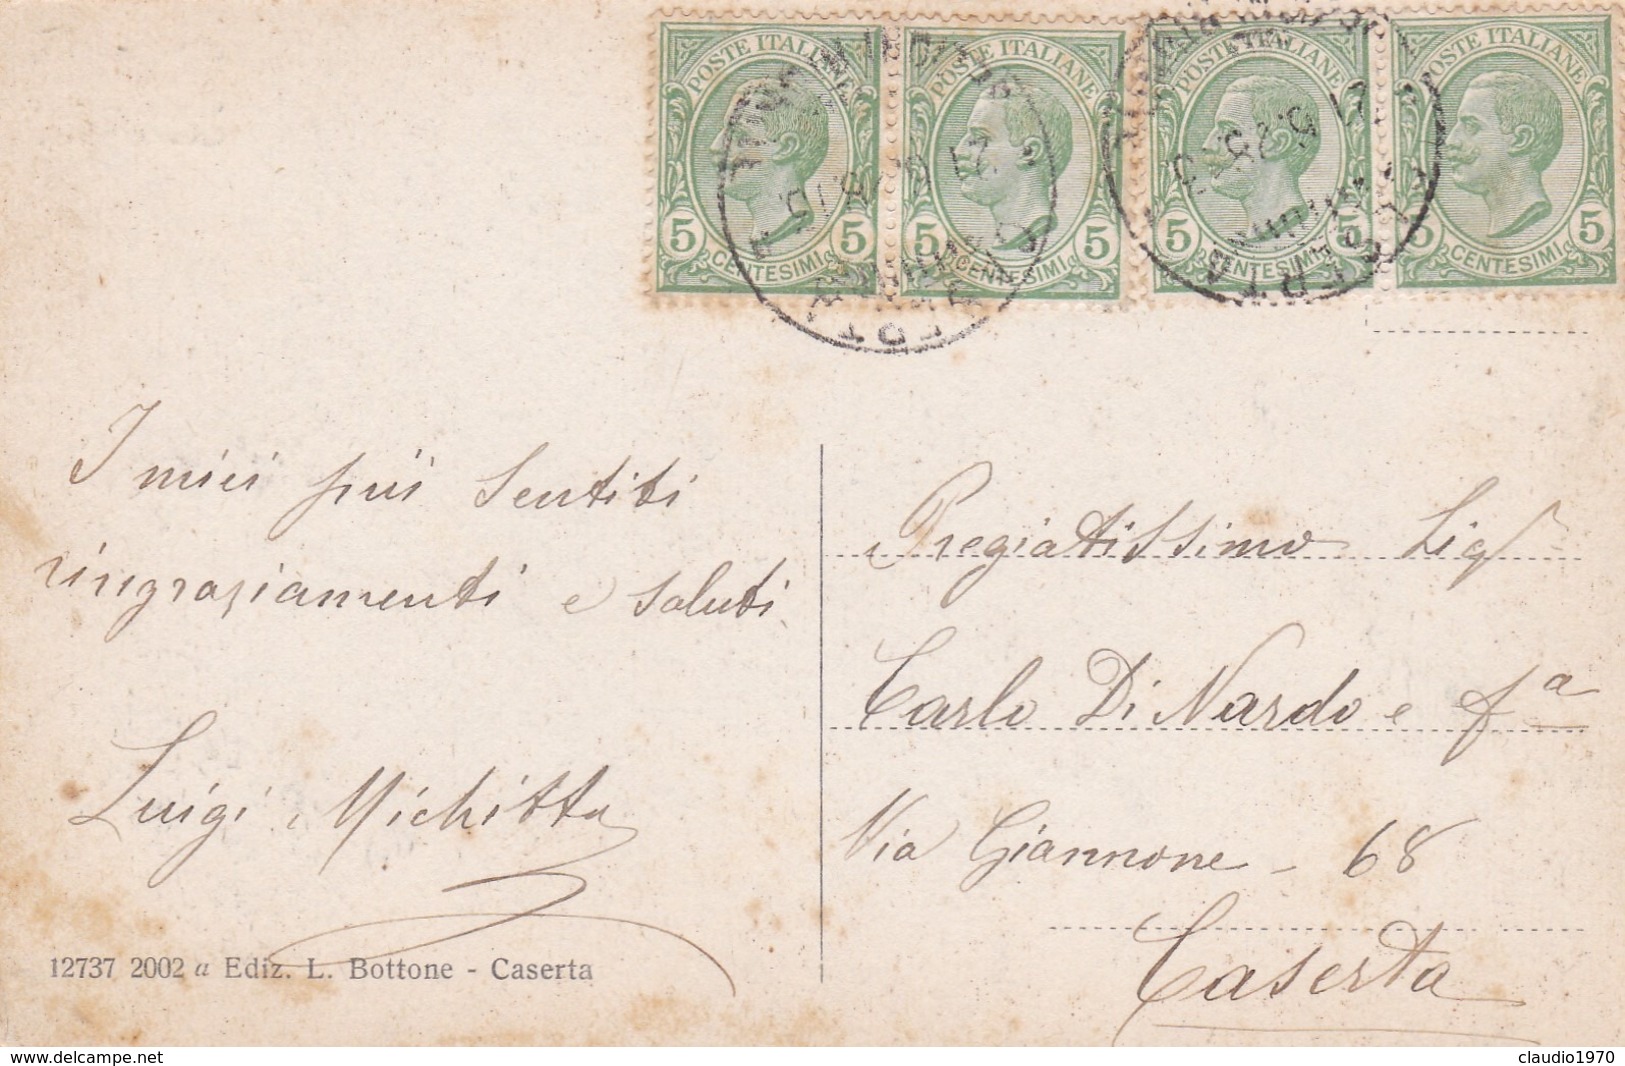 POSTE ITALIANE POSTE ITALIANE POSTE ITALIANE POSTE ITALIANE
5 5 5 5 5 5 5 5
CENTESIMI CENTESIMI CENTESIMI CENTESIMI
I miei più sentiti
ringraziamenti e saluti
Luigi Michitto
12737 2002 a Ediz. L. Bottone - Caserta
Pregiatissimo Sig
Carlo Di Nardo e fª
Via Giannone - 68
Caserta
delcampe.net
claudio1970